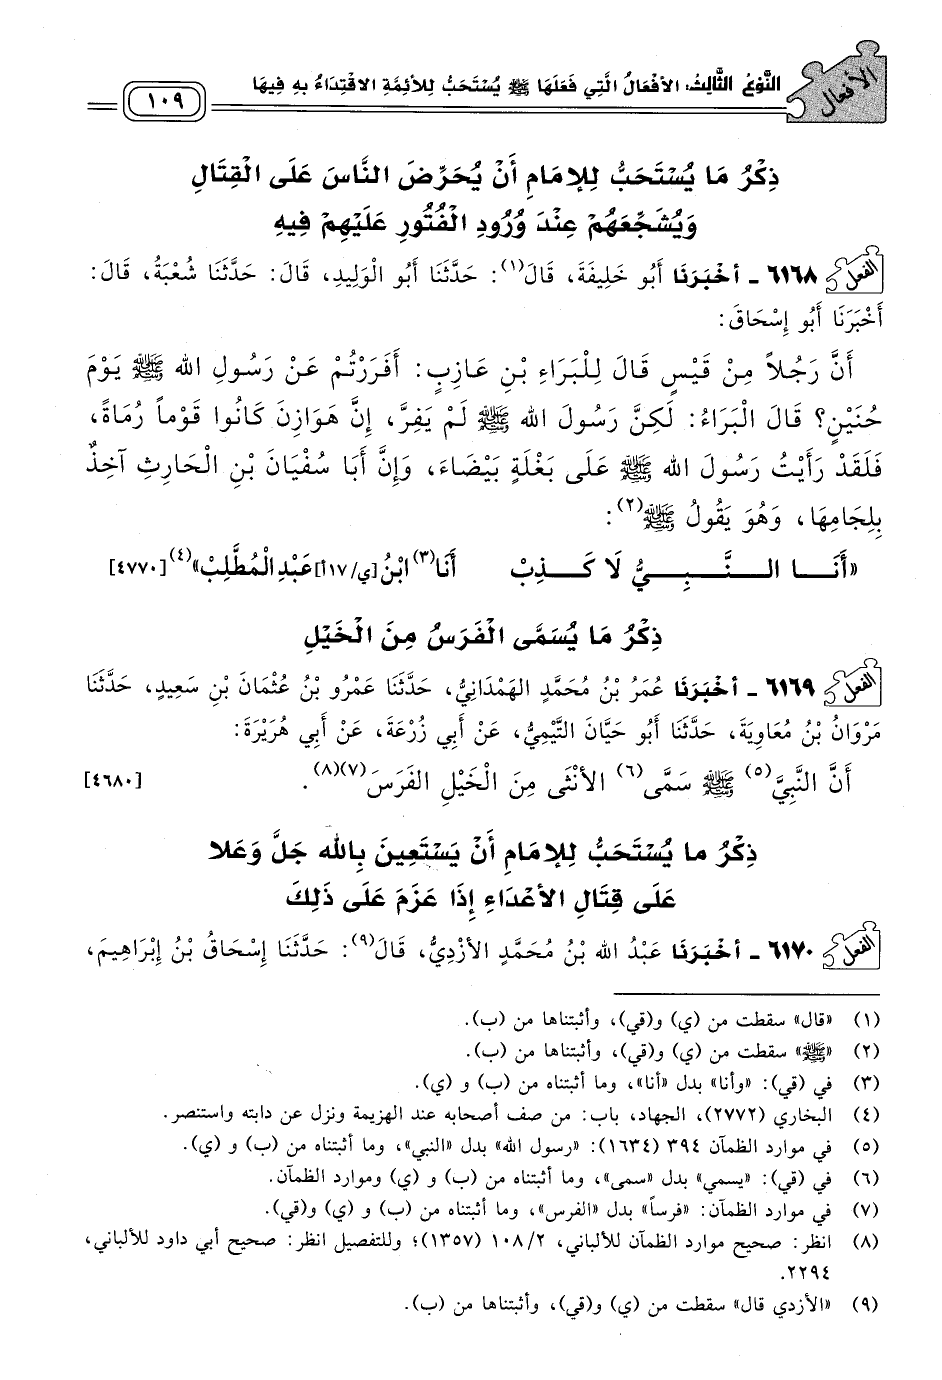 الأفعال
النَّوْعُ الثَّالِثُ: الأفْعَالُ الَّتِي فَعَلَهَا ﷺ يُسْتَحَبُّ لِلأئِمَّةِ الاقْتِدَاءُ بِهِ فِيهَا
١٠٩
ذِكْرُ مَا يُسْتَحَبُّ لِلإمَامِ أَنْ يُحَرِّضَ النَّاسَ عَلَى الْقِتَالِ
وَيُشَجِّعَهُمْ عِنْدَ وُرُودِ الْفُتُورِ عَلَيْهِمْ فِيهِ
الفعل ٦١٦٨ - أخْبَرَنَا أَبُو خَلِيفَةَ، قَالَ(١): حَدَّثَنَا أَبُو الْوَلِيدِ، قَالَ: حَدَّثَنَا شُعْبَةُ، قَالَ:
أَخْبَرَنَا أَبُو إِسْحَاقَ:
أَنَّ رَجُلاً مِنْ قَيْسٍ قَالَ لِلْبَرَاءِ بْنِ عَازِبٍ: أَفَرَرْتُمْ عَنْ رَسُولِ الله ﷺ يَوْمَ
حُنَيْنٍ؟ قَالَ الْبَرَاءُ: لَكِنَّ رَسُولَ الله ﷺ لَمْ يَفِرَّ، إِنَّ هَوَازِنَ كَانُوا قَوْماً رُمَاةً،
فَلَقَدْ رَأَيْتُ رَسُولَ الله ﷺ عَلَى بَغْلَةٍ بَيْضَاءَ، وَإِنَّ أَبَا سُفْيَانَ بْنِ الْحَارِثِ آخِذٌ
بِلِجَامِهَا، وَهُوَ يَقُولُ ﷺ(٢):
«أَنَا النَّبِيُّ لَا كَذِبْ أَنَا(٣) ابْنُ [ي/١٧أ] عَبْدِ الْمُطَّلِبْ»(٤) [٤٧٧٠]
ذِكْرُ مَا يُسَمَّى الْفَرَسُ مِنَ الْخَيْلِ
الفعل ٦١٦٩ - أخْبَرَنَا عُمَرُ بْنُ مُحَمَّدٍ الهَمْدَانِيُّ، حَدَّثَنَا عَمْرُو بْنُ عُثْمَانَ بْنِ سَعِيدٍ، حَدَّثَنَا
مَرْوَانُ بْنُ مُعَاوِيَةَ، حَدَّثَنَا أَبُو حَيَّانَ التَّيْمِيُّ، عَنْ أَبِي زُرْعَةَ، عَنْ أَبِي هُرَيْرَةَ:
أَنَّ النَّبِيَّ(٥) ﷺ سَمَّى(٦) الأنْثَى مِنَ الْخَيْلِ الفَرَسَ(٧)(٨). [٤٦٨٠]
ذِكْرُ ما يُسْتَحَبُّ لِلإمَامِ أَنْ يَسْتَعِينَ بِالله جَلَّ وَعَلا
عَلَى قِتَالِ الأعْدَاءِ إِذَا عَزَمَ عَلَى ذَلِكَ
الفعل ٦١٧٠ - أخْبَرَنَا عَبْدُ الله بْنُ مُحَمَّدٍ الأزْدِيُّ، قَالَ(٩): حَدَّثَنَا إِسْحَاقُ بْنُ إِبْرَاهِيمَ،
(١) «قال» سقطت من (ي) و(قي)، وأثبتناها من (ب).
(٢) «ﷺ» سقطت من (ي) و(قي)، وأثبتناها من (ب).
(٣) في (قي): «وأنا» بدل «أنا»، وما أثبتناه من (ب) و (ي).
(٤) البخاري (٢٧٧٢)، الجهاد، باب: من صف أصحابه عند الهزيمة ونزل عن دابته واستنصر.
(٥) في موارد الظمآن ٣٩٤ (١٦٣٤): «رسول الله» بدل «النبي»، وما أثبتناه من (ب) و (ي).
(٦) في (قي): «يسمي» بدل «سمى»، وما أثبتناه من (ب) و (ي) وموارد الظمآن.
(٧) في موارد الظمآن: «فرساً» بدل «الفرس»، وما أثبتناه من (ب) و (ي) و(قي).
(٨) انظر: صحيح موارد الظمآن للألباني، ١٠٨/٢ (١٣٥٧)؛ وللتفصيل انظر: صحيح أبي داود للألباني،
٢٢٩٤.
(٩) «الأزدي قال» سقطت من (ي) و(قي)، وأثبتناها من (ب).